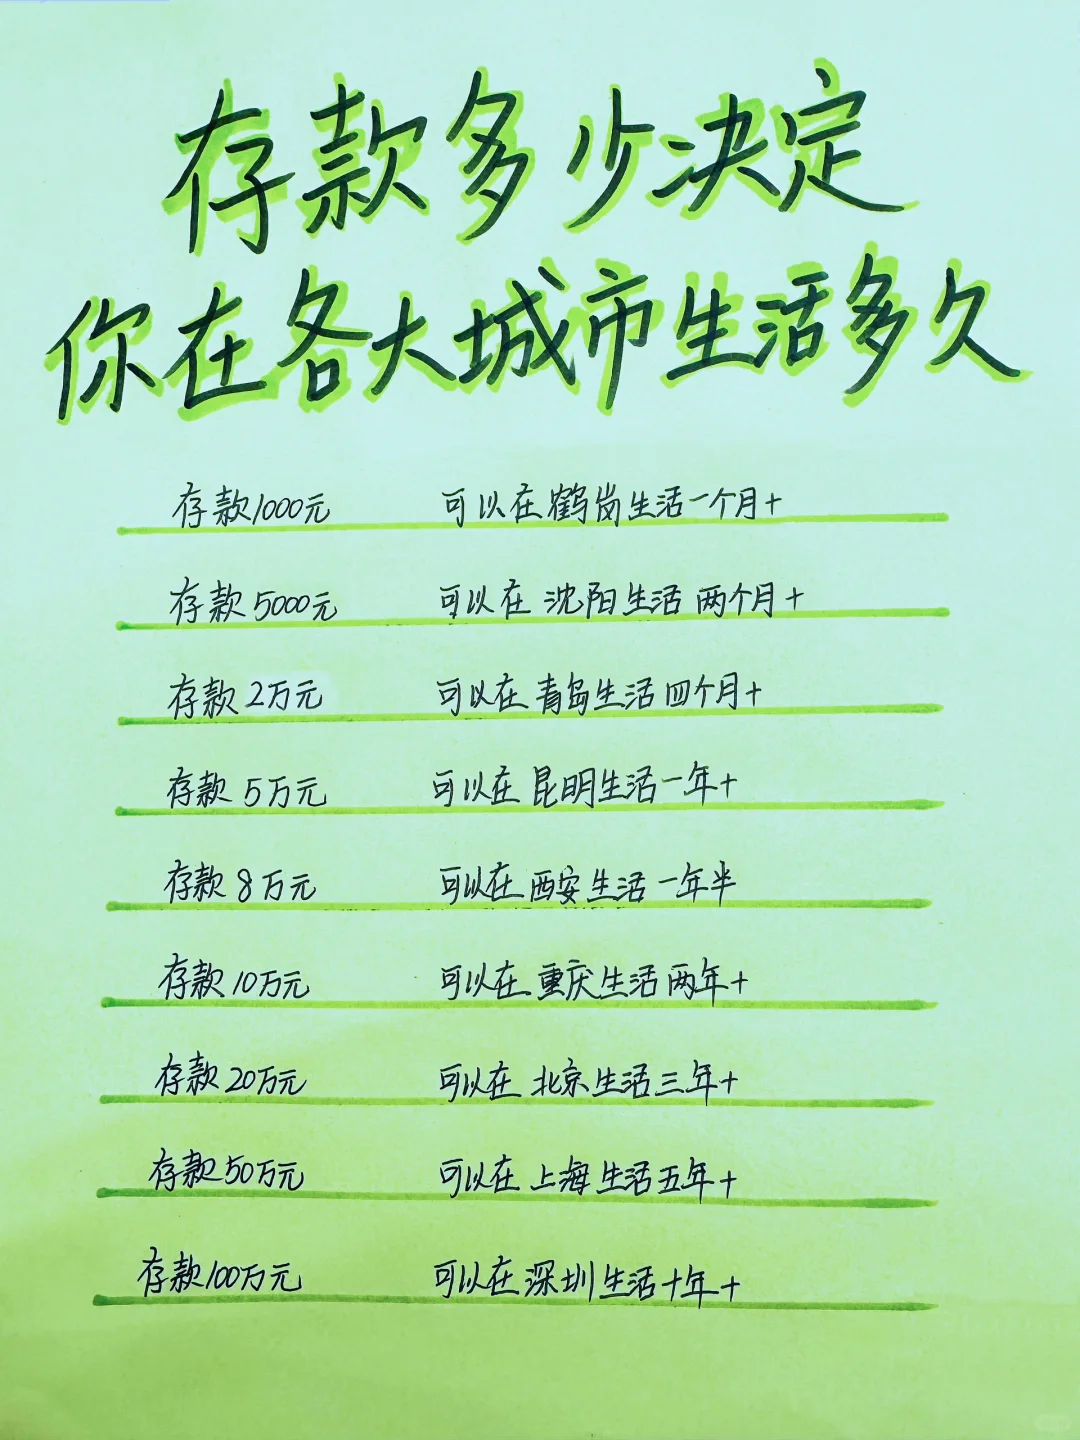 存款多少决定
你在各大城市生活多久
存款1000元 可以在鹤岗生活一个月+
存款5000元 可以在沈阳生活两个月+
存款2万元 可以在青岛生活四个月+
存款5万元 可以在昆明生活一年+
存款8万元 可以在西安生活一年半
存款10万元 可以在重庆生活两年+
存款20万元 可以在北京生活三年+
存款50万元 可以在上海生活五年+
存款100万元 可以在深圳生活十年+